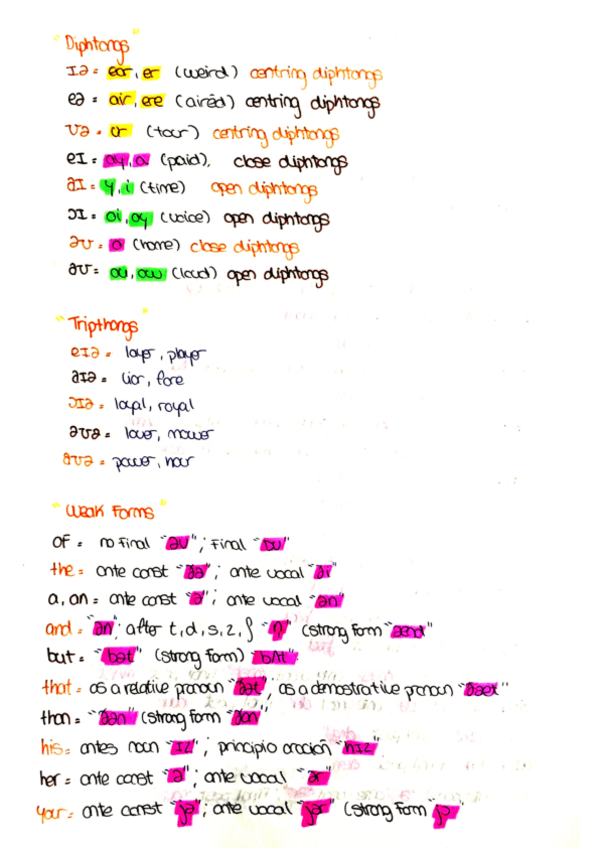 "Diphtongs"
Iə = ear, er (weird) centring diphtongs
eə = air, ere (aired) centring diphtongs
ʊə = ur (tour) centring diphtongs
eI = ay, a (paid), close diphtongs
aI = y, i (time) open diphtongs
ɔI = oi, oy (voice) open diphtongs
əʊ = o (home) close diphtongs
aʊ = ou, ow (loud) open diphtongs
"Tripthongs"
eIə = layer, player
aIə = liar, fire
ɔIə = loyal, royal
əʊə = lower, mower
aʊə = power, hour
"Weak Forms"
of = no final "əv"; final "ɒv"
the = ante const "ðə"; ante vocal "ði"
a, an = ante const "ə"; ante vocal "ən"
and = "ən"; after t, d, s, z, ʃ "n̩" (strong form "ænd"
but = "bət" (strong form) "bʌt"
that = as a relative pronoun "ðət", as a demostrative pronoun "ðæt"
than = "ðən" (strong form "ðan"
his = antes noun "IZ"; principio oración "hIZ"
her = ante const "ə"; ante vocal "ər"
your = ante const "jə"; ante vocal "jər" (strong form